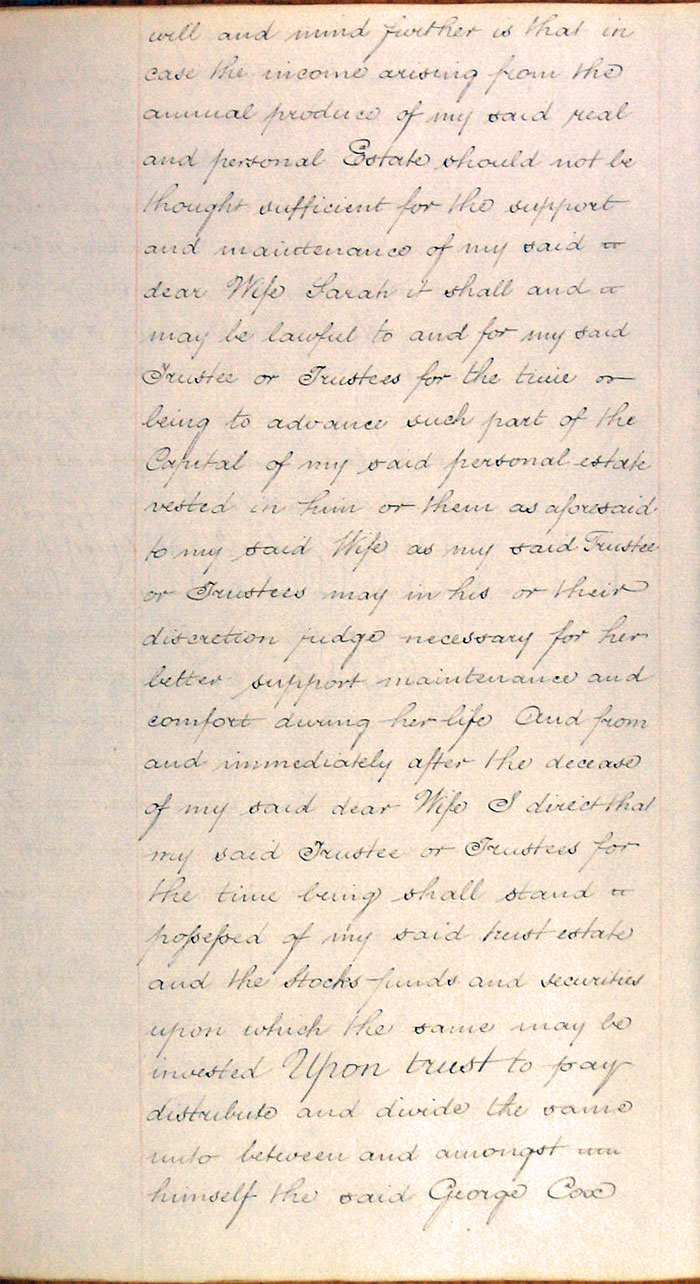 will and mind further is that in
case the income arising from the
annual produce of my said real
and personal Estate should not be
thought sufficient for the support
and maintenance of my said
dear Wife Sarah it shall and
may be lawful to and for my said
Trustee or Trustees for the time
being to advance such part of the
Capital of my said personal estate
vested in him or them as aforesaid
to my said Wife as my said Trustee
or Trustees may in his or their
discretion judge necessary for her
better support maintenance and
comfort during her life And from
and immediately after the decease
of my said dear Wife I direct that
my said Trustee or Trustees for
the time being shall stand
possessed of my said trust estate
and the Stocks funds and securities
upon which the same may be
invested Upon trust to pay
distribute and divide the same
unto between and amongst
himself the said George Cox